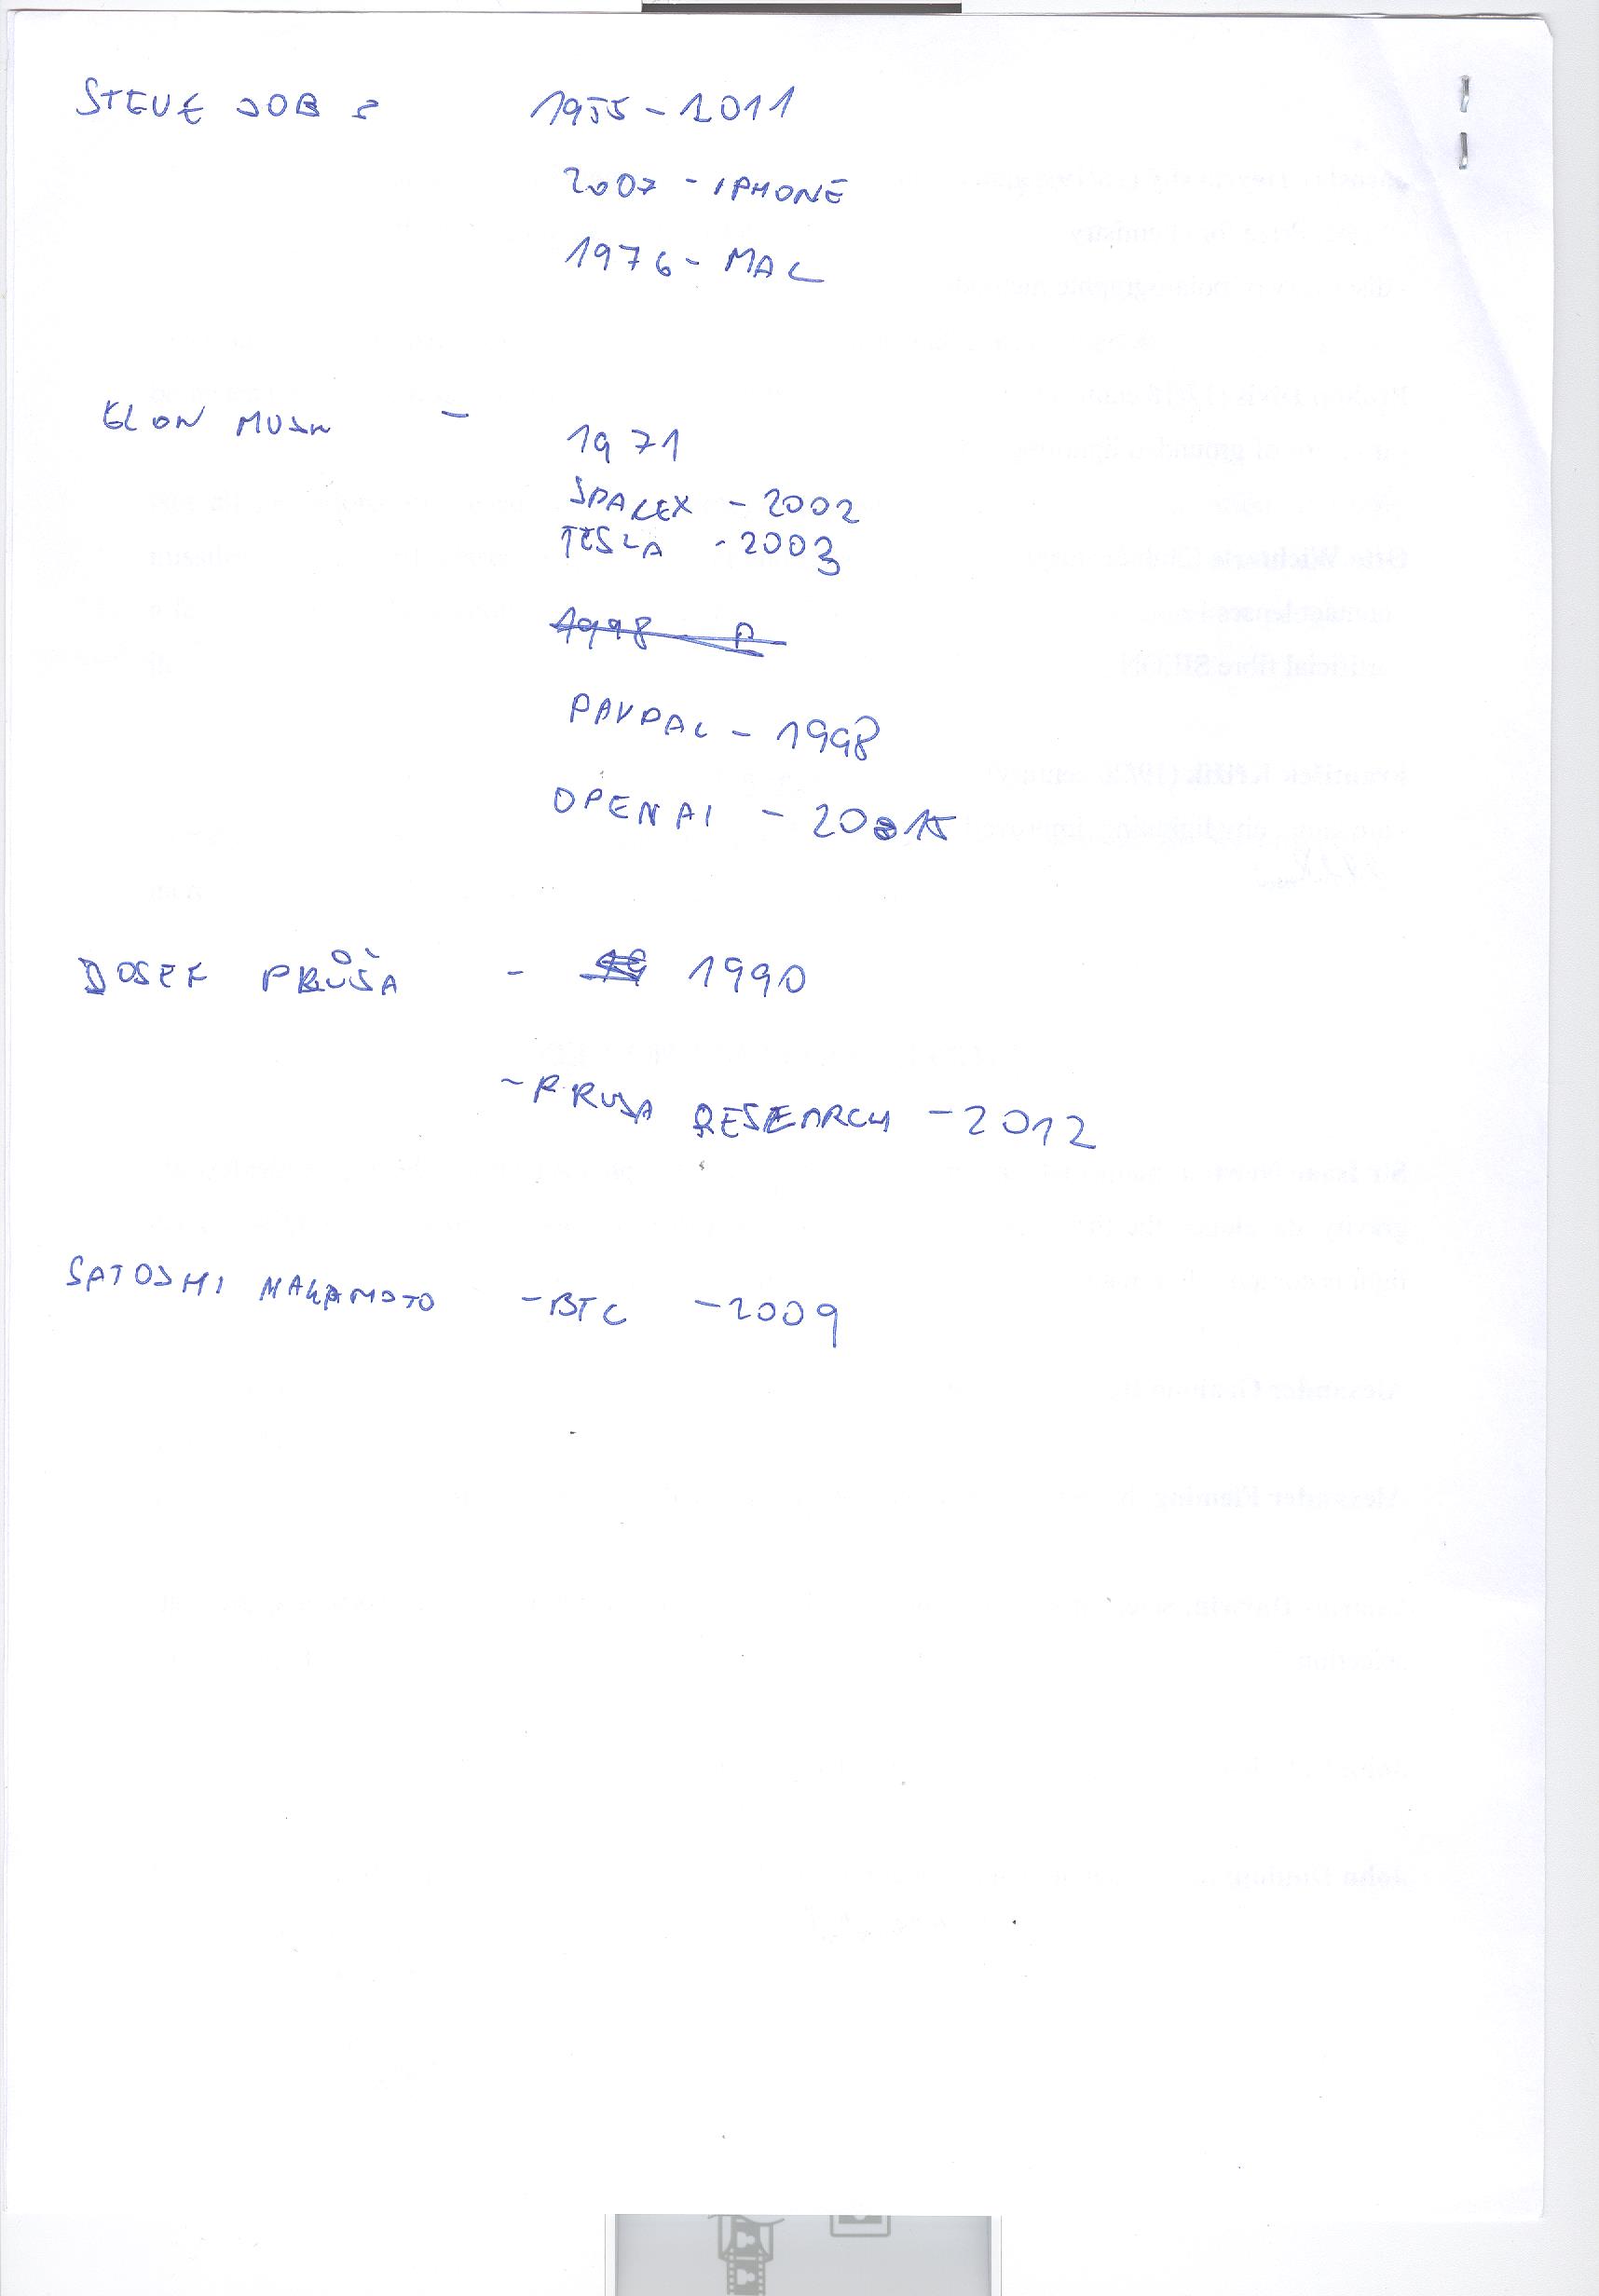 STEVE JOBS 1955 - 2011
2007 - IPHONE
1976 - MAC
ELON MUSK -
1971
SPACEX - 2002
TESLA - 2003
1998 - P
PAYPAL - 1998
OPENAI - 2015
JOSEF PRŮŠA - 1990
- PRUSA RESEARCH - 2012
SATOSHI NAKAMOTO - BTC - 2009